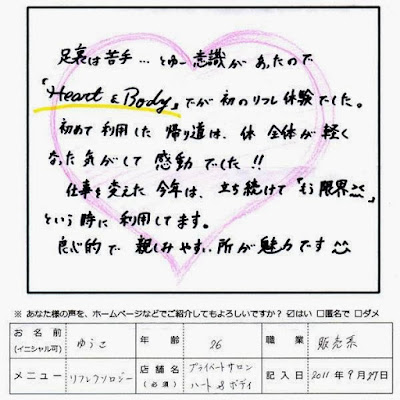 足裏は苦手…とゆー意識があったので
『Heart & Body』でが初のリフレ体験でした。
初めて利用した帰り道は、体全体が軽く
なった気がして感動でした!!
仕事を変えた今年は、立ち続けて「もう限界
という時に利用してます。
良心的で親しみやすい所が魅力です
※ あなた様の声を、ホームページなどでご紹介してもよろしいですか？ ☑はい □匿名で □ダメ
お名前 (イニシャル可) ゆうこ 年齢 26 職業 販売系
メニュー リフレクソロジー 店舗名 (必須) プライベートサロン ハート&ボディ 記入日 2011年9月27日